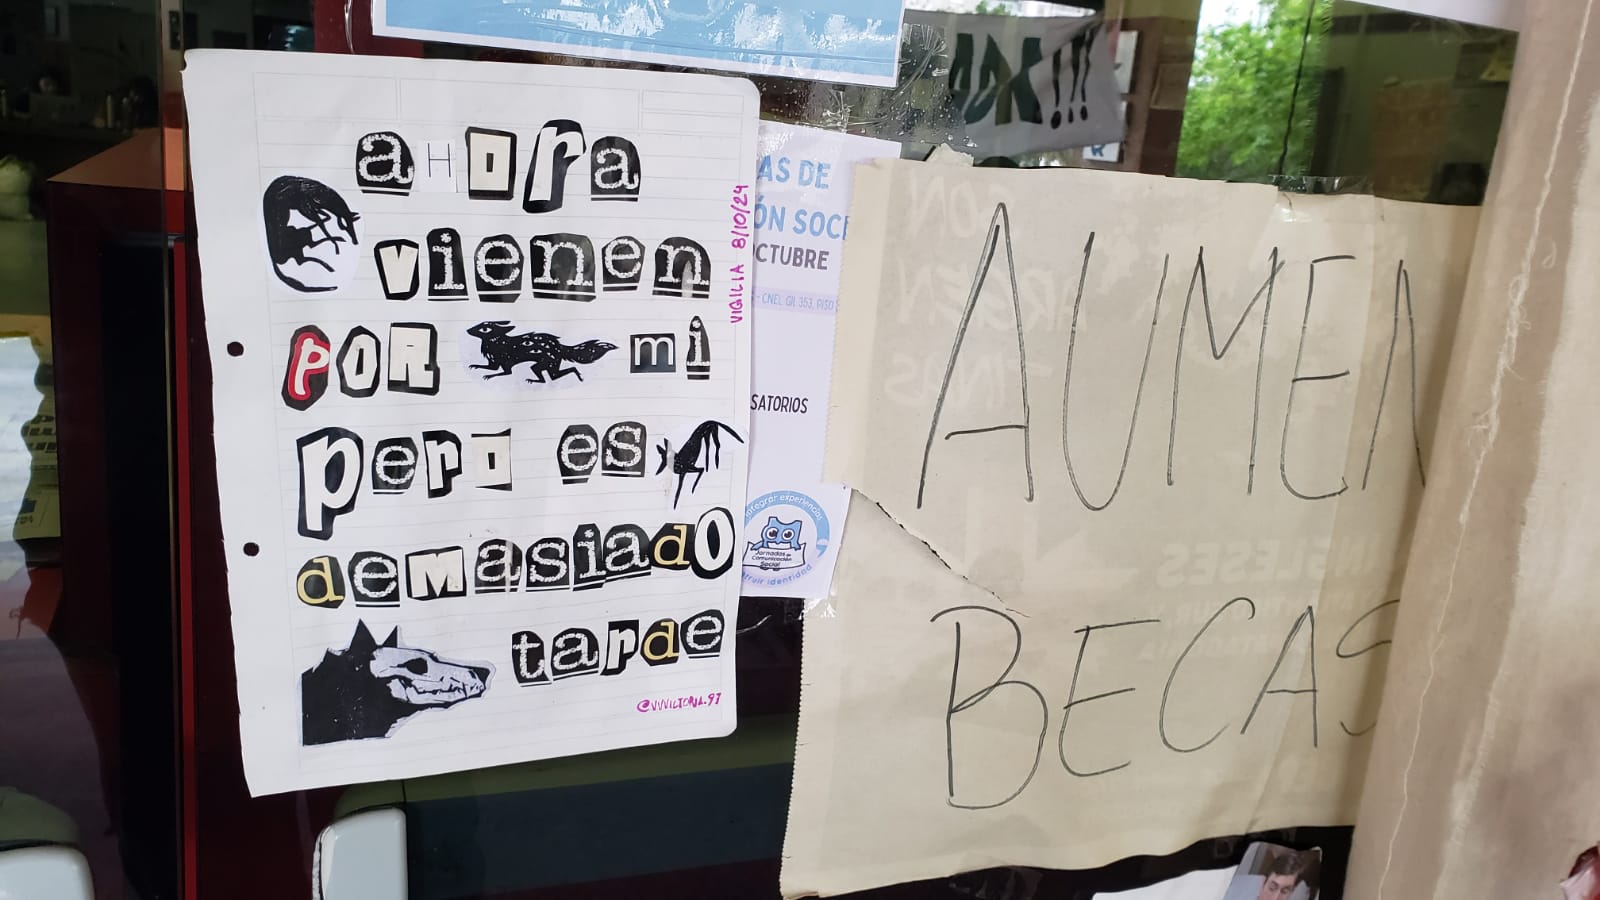 ahora
vienen
POR mi
pero es
demasiado
tarde
@VVVICTORIA.97
VIGILIA 8/10/24
AS DE
ÓN SOCI
OCTUBRE
- CNEL. GIL 353, PISO
SATORIOS
integrar experiencias
Jornadas de
Comunicación
Social
identidad
AUMEN
BECAS